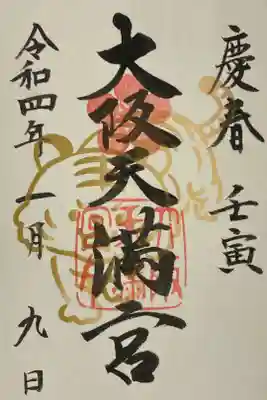 慶春 壬寅
大阪天満宮
令和四年 一月 九日